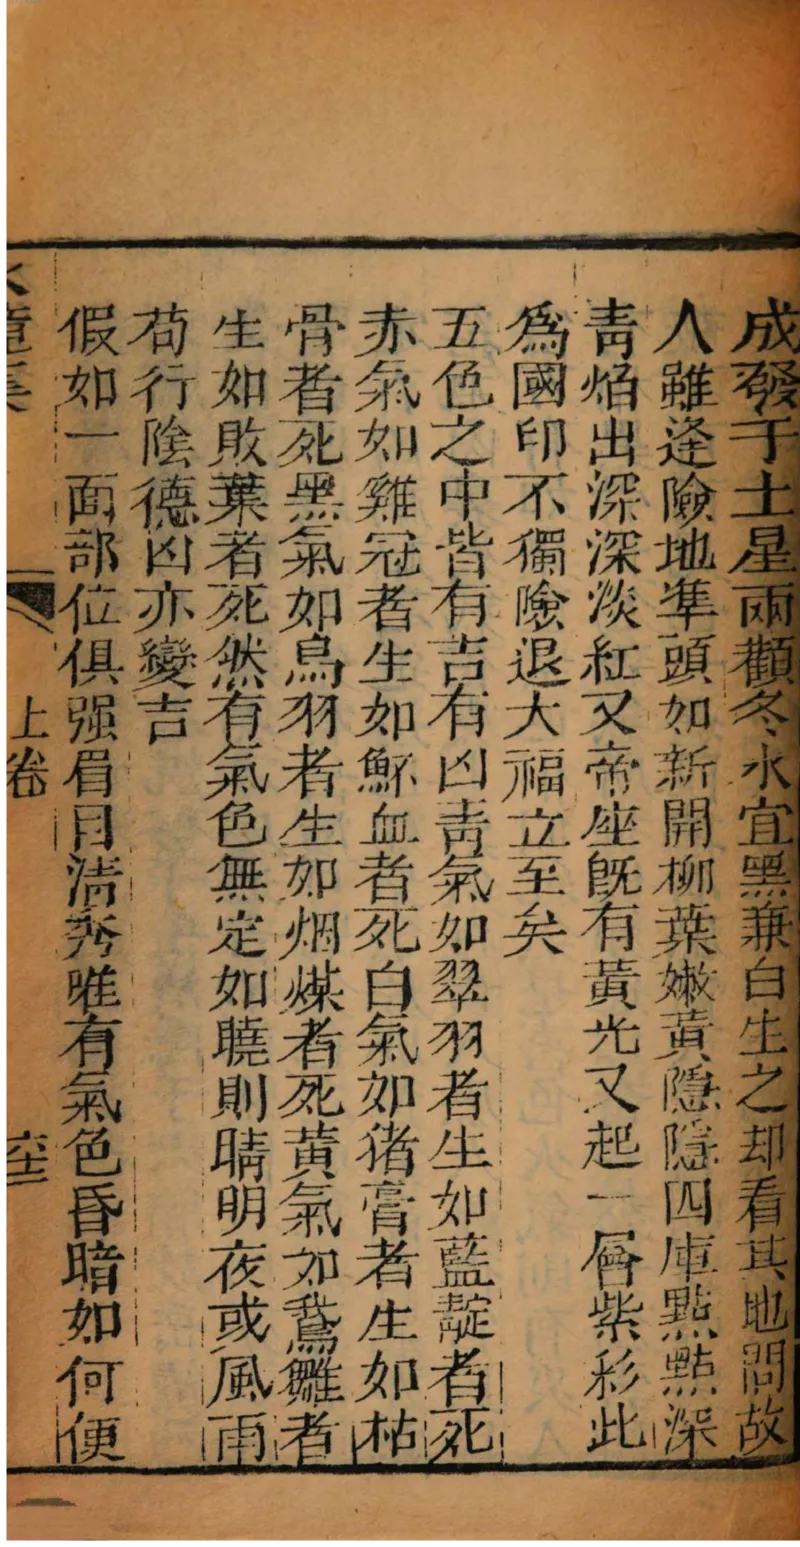 成發于土星兩顴冬水宜黑兼白生之却看其地問故
人雖逢險地準頭如新開柳葉嫩黃隱隱四庫點點深
青焰出深深淡紅又帝座旣有黃光又起一層紫彩此
爲國印不獨險退大福立至矣
五色之中皆有吉有凶靑氣如翠羽者生如藍靛者死
赤氣如雞冠者生如衃血者死白氣如猪膏者生如枯
骨者死黑氣如烏羽者生如烟煤者死黃氣如鵞雛者
生如敗葉者死然有氣色無定如曉則晴明夜或風雨
苟行陰德凶亦變吉
假如一面部位俱强眉目清秀唯有氣色昏暗如何便
上卷